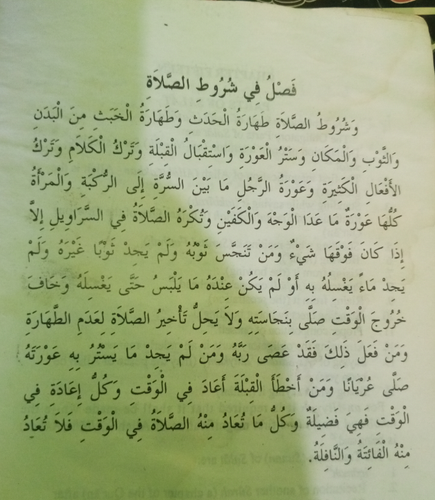 فَصْلُ فِي شُرُوطِ الصَّلَاةِ
وَشُرُوطُ الصَّلَاةِ طَهَارَةُ الْحَدَثِ وَطَهَارَةُ الْخَبَثِ مِنَ الْبَدَنِ
وَالثَّوْبِ وَالْمَكَانِ وَسَتْرُ الْعَوْرَةِ وَاسْتِقْبَالُ الْقِبْلَةِ وَتَرْكُ الْكَلَامِ وَتَرْكُ
الأَفْعَالِ الْكَثِيرَةِ وَعَوْرَةُ الرَّجُلِ مَا بَيْنَ السُّرَّةِ إِلَى الرُّكْبَةِ وَالْمَرْأَةُ
كُلُّهَا عَوْرَةٌ مَا عَدَا الْوَجْهَ وَالْكَفَّيْنِ وَتُكْرَهُ الصَّلَاةُ فِي السَّرَاوِيلِ إِلاَّ
إِذَا كَانَ فَوْقَهَا شَيْءٌ وَمَنْ تَنَجَّسَ ثَوْبُهُ وَلَمْ يَجِدْ ثَوْبًا غَيْرَهُ وَلَمْ
يَجِدْ مَاءً يَغْسِلُهُ بِهِ أَوْ لَمْ يَكُنْ عِنْدَهُ مَا يَلْبَسُ حَتَّى يَغْسِلَهُ وَخَافَ
خُرُوجَ الْوَقْتِ صَلَّى بِنَجَاسَتِهِ وَلاَ يَحِلُّ تَأْخِيرُ الصَّلَاةِ لِعَدَمِ الطَّهَارَةِ
وَمَنْ فَعَلَ ذَلِكَ فَقَدْ عَصَى رَبَّهُ وَمَنْ لَمْ يَجِدْ مَا يَسْتُرُ بِهِ عَوْرَتَهُ
صَلَّى عُرْيَانًا وَمَنْ أَخْطَأَ الْقِبْلَةَ أَعَادَ فِي الْوَقْتِ وَكُلُّ إِعَادَةٍ فِي
الْوَقْتِ فَهِيَ فَضِيلَةٌ وَكُلُّ مَا تُعَادُ مِنْهُ الصَّلَاةُ فِي الْوَقْتِ فَلاَ تُعَادُ
مِنْهُ الْفَائِتَةُ وَالنَّافِلَةُ.